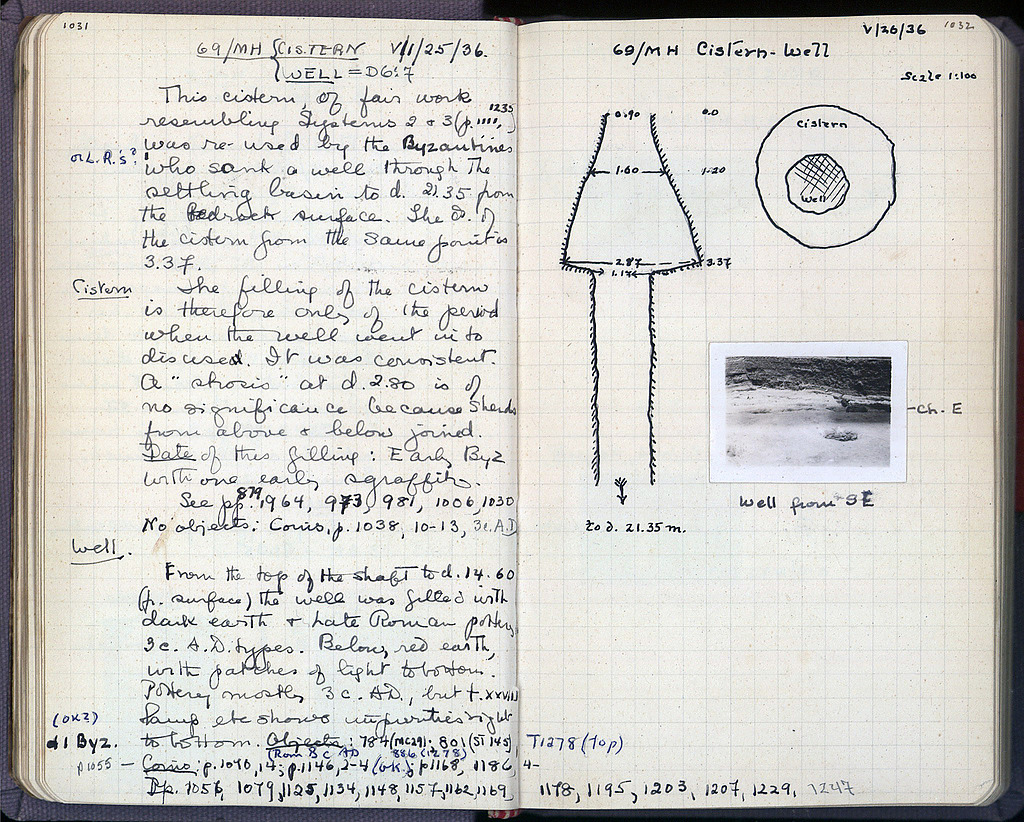 1031
69/MH { CISTERN V/1/25/36.
{ WELL = D6:7
This cistern, of fair work
1235
resembling Systems 2 & 3 (p. 1111,
was re-used by the Byzantines
or L.R.'s?
who sank a well through the
settling basin to d. 21.35 from
the bedrock surface. The d. of
the cistern from the same point is
3.37.
Cistern
The filling of the cistern
is therefore only of the period
when the well went into
disused. It was consistent.
A "strosis" at d. 2.80 is of
no significance because sherds
from above & below joined.
Date of this filling: Early Byz
with one early sgraffito.
See pp. 879, 964, 973, 981, 1006, 1030
No objects: Coins, p. 1038, 10-13, 3c. A.D
Well.
From the top of the shaft to d. 14.60
(fr. surface) the well was filled with
dark earth & Late Roman pottery
3c. A.D. types. Below, red earth,
with patches of light to bottom.
Pottery mostly 3c. AD., but t. XXVIII
lamp etc shows impurities right
to bottom. Objects: 784 (MC29); 801 (ST 145)
1 Byz.
p1055 —
Coins: p. 1040, 14; p. 1146, 2-4 (ok); p1168, 1186, 4-
Pp. 1056, 1079, 1125, 1134, 1148, 1157, 1162, 1169,
V/26/36
1032
69/MH Cistern-Well
Scale 1:100
0.90
0.0
1.60
1.20
2.87
3.37
1.17
cistern
well
ch. E
Well from SE
to d. 21.35 m.
T1278 (top)
1178, 1195, 1203, 1207, 1229, 1247